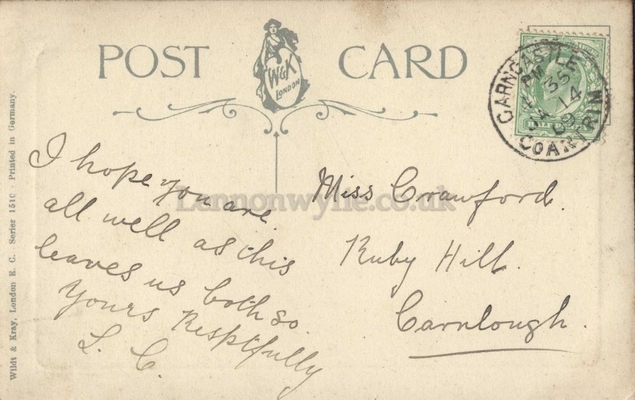 POST CARD
W&K
LONDON
CARNCASTLE
CO ANTRIM
JA 14
09
Wildt & Kray, London E. C. Series 1510 - Printed in Germany.
Lennonwylie.co.uk
I hope you are
all well as this
leaves us both so
Yours Resptfully
L. C.
Miss Crawford.
Ruby Hill.
Carnlough.